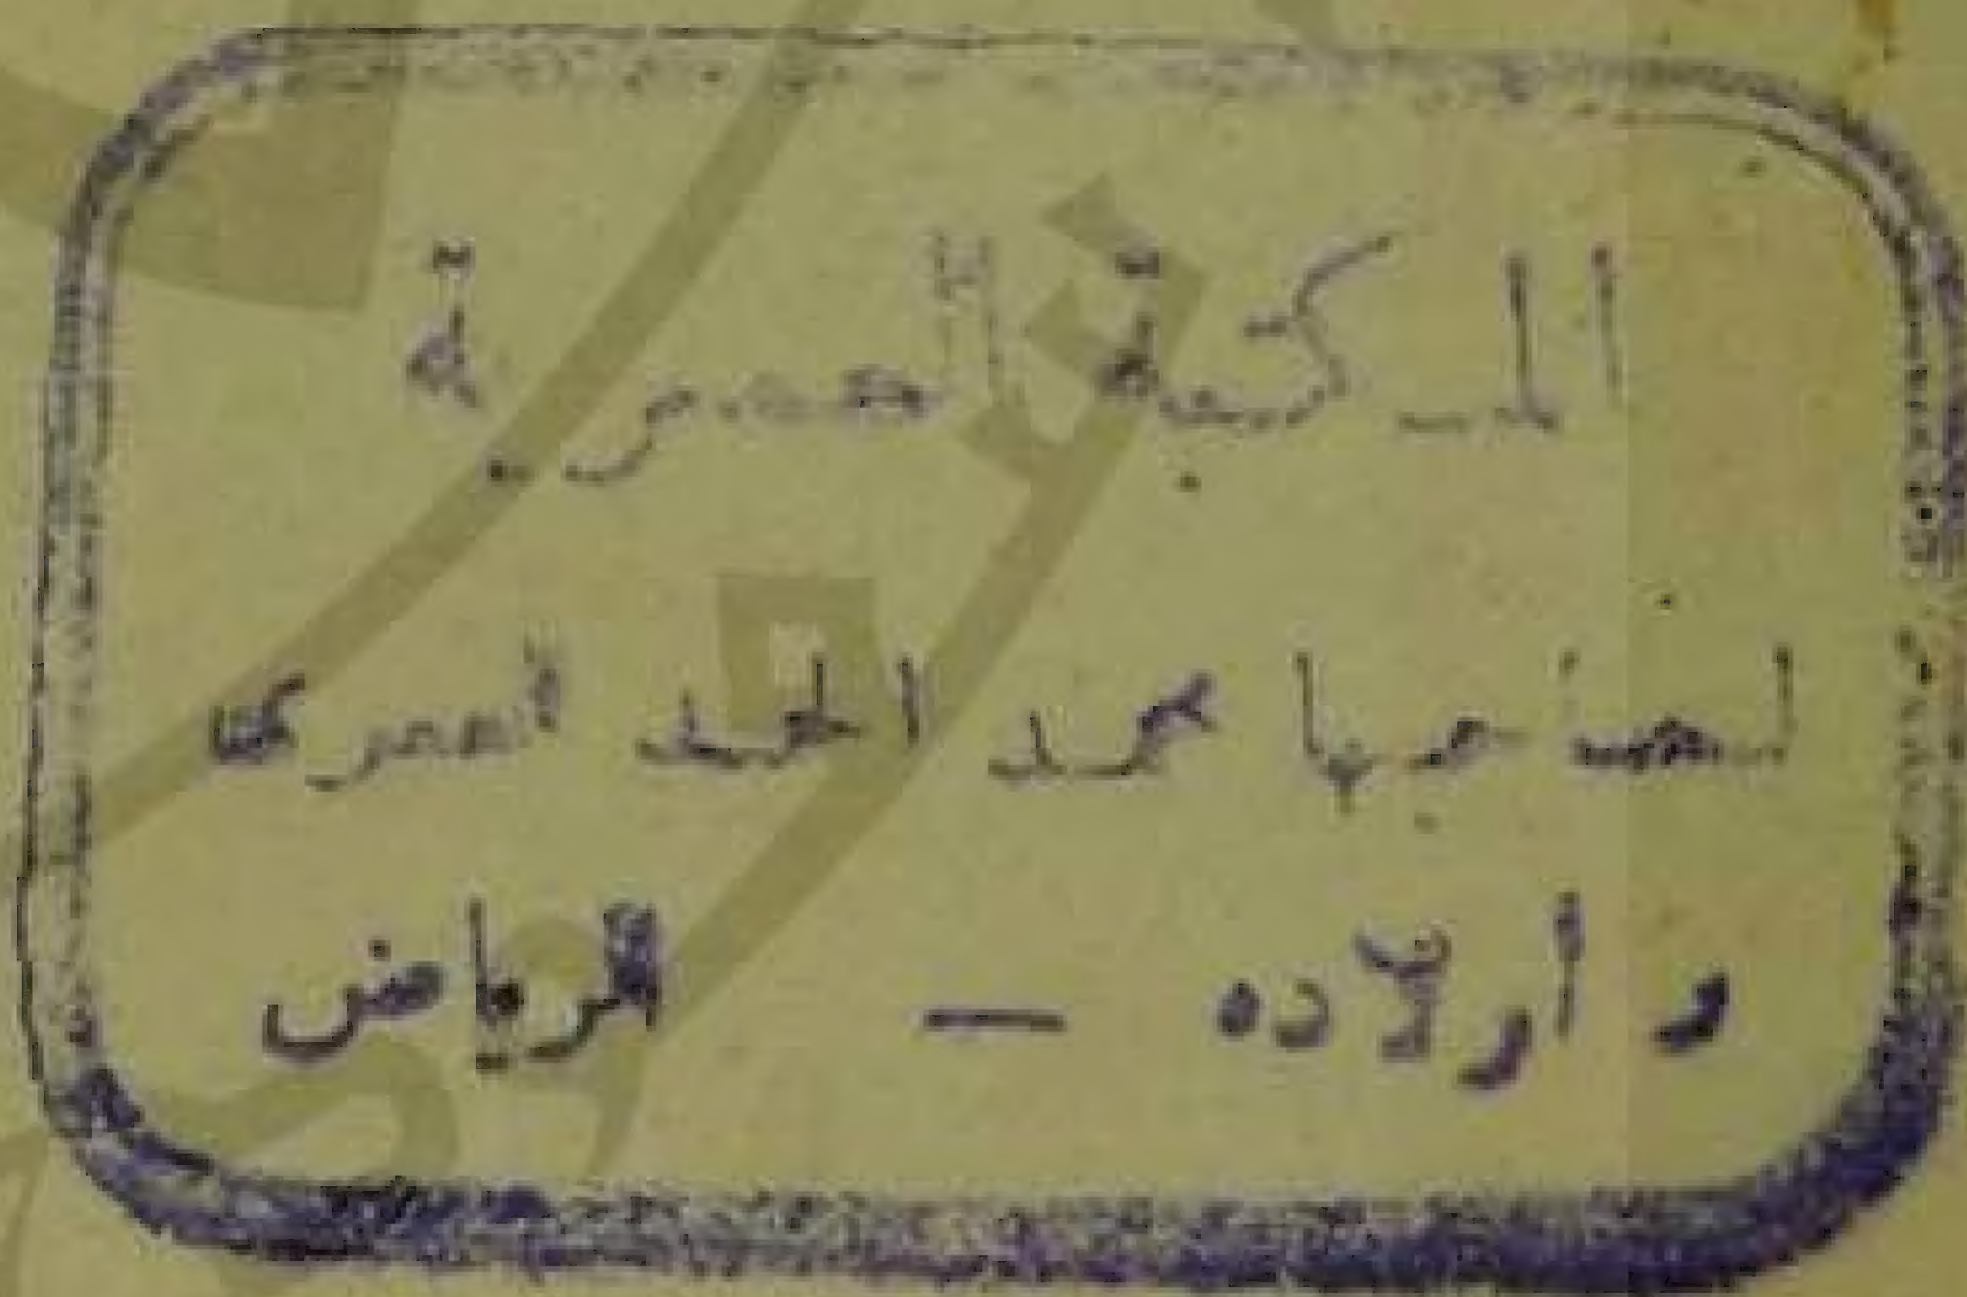 المكتبة العصرية
لصاحبها محمد الحمد
وأولاده — الرياض